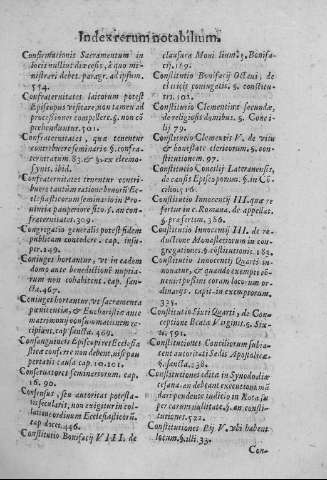 Index rerum notabilium.
Confirmationis Sacramentum in
locis nullius diœcesis, à quo mi-
nistrari debet. paragr. ad ipsum.
554.
Confraternitates laicorum potest
Episcopus visitare, non tamen ad
processiones compellere. §. non cō
prehenduntur. 501.
Confraternitates, qua tenentur
contribuere seminario §. confra-
ternitatum 83. & §. ex elemo-
synis. ibid.
Confraternitates tenentur contri-
buere tantùm ratione bonorū Ec-
clesiasticorum seminario in Pro-
uincia pauperiore §. an con-
fraternitates. 309.
Congregatio generalis potest fidem
publicam concedere. cap. insu-
per. 249.
Coniuges hortantur, vt in eadem
domo ante benedictionē nuptia-
rum non cohabitent. cap. san-
cta. 467.
Coniuges hortantur, vt sacramenta
pœnitentiæ, & Eucharistiæ ante
matrimonij consummationem re-
cipiant. cap. sancta. 469.
Consanguineis Episcopi res Ecclesia
sticæ conferre non debent, nisi pau
pertatis causa cap. 10. 101.
Conseruatores seminariorum. cap.
16. 90.
Consensus, seu autoritas potesta-
tis secularis, non exigitur in col-
latione ordinum Ecclesiasticorū.
cap docet. 446.
Constitutio Bonifacij VIII. de
clausura Moni lium 25. Bonifa-
cij. 189.
Constitutio Bonifacij Octaui, de
clericis coniugatis. §. constitu-
ti. 102.
Constitutio Clementinæ secundæ,
de religiosis domibus. §. Conci-
lij 79.
Constitutio Clementis V. de vita
& honestate clericorum. §. con-
stitutionem. 97.
Constitutio Concilij Lateranensis,
de causis Episcoporum. §. in Cō
cilio. 116.
Constitutio Innocentij III. quæ re
fertur in c. Romana. de appellat.
§. præsertim. 386.
Constitutio Innocentij III. de re-
ductione Monasteriorum in con-
gregationes. §. constitutionis. 183.
Constitutio Innocentij Quarti in-
nouatur, & quando exempti cō-
ueniri possint coram locorum or-
dinarijs. capit. in exemptorum.
335.
Constitutio Sixti Quarti, de Con-
ceptione Beatæ Virginis. §. Six-
ti. 591.
Constitutiones Conciliorum subia-
cent autoritati Sedis Apostolicæ.
§. sancita. 238.
Constitutiones edita in Synodo diœ
cesana. an debeant executioni mā
dari pendente iudicio in Rota su
per earum nullitate. §. an consti-
tutiones. 522.
Constitutiones Pij V. vbi habent
locum. §. alli 33.
Con-